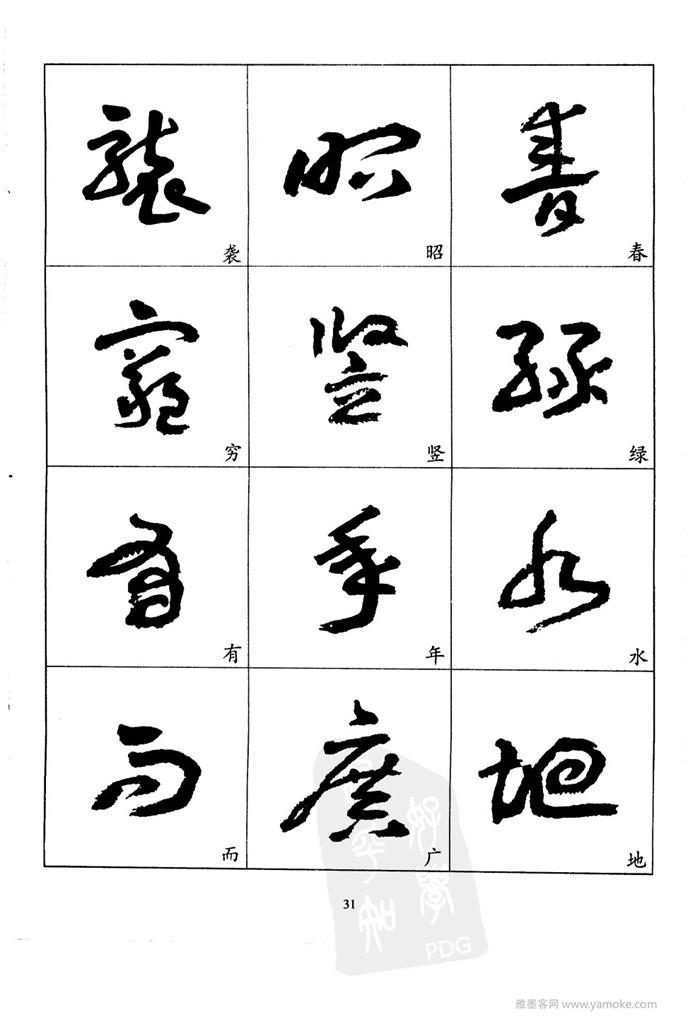 袭 昭 春
穷 竖 绿
有 年 水
而 广 地
31
好学
PDG
雅墨客网 www.yamoke.com